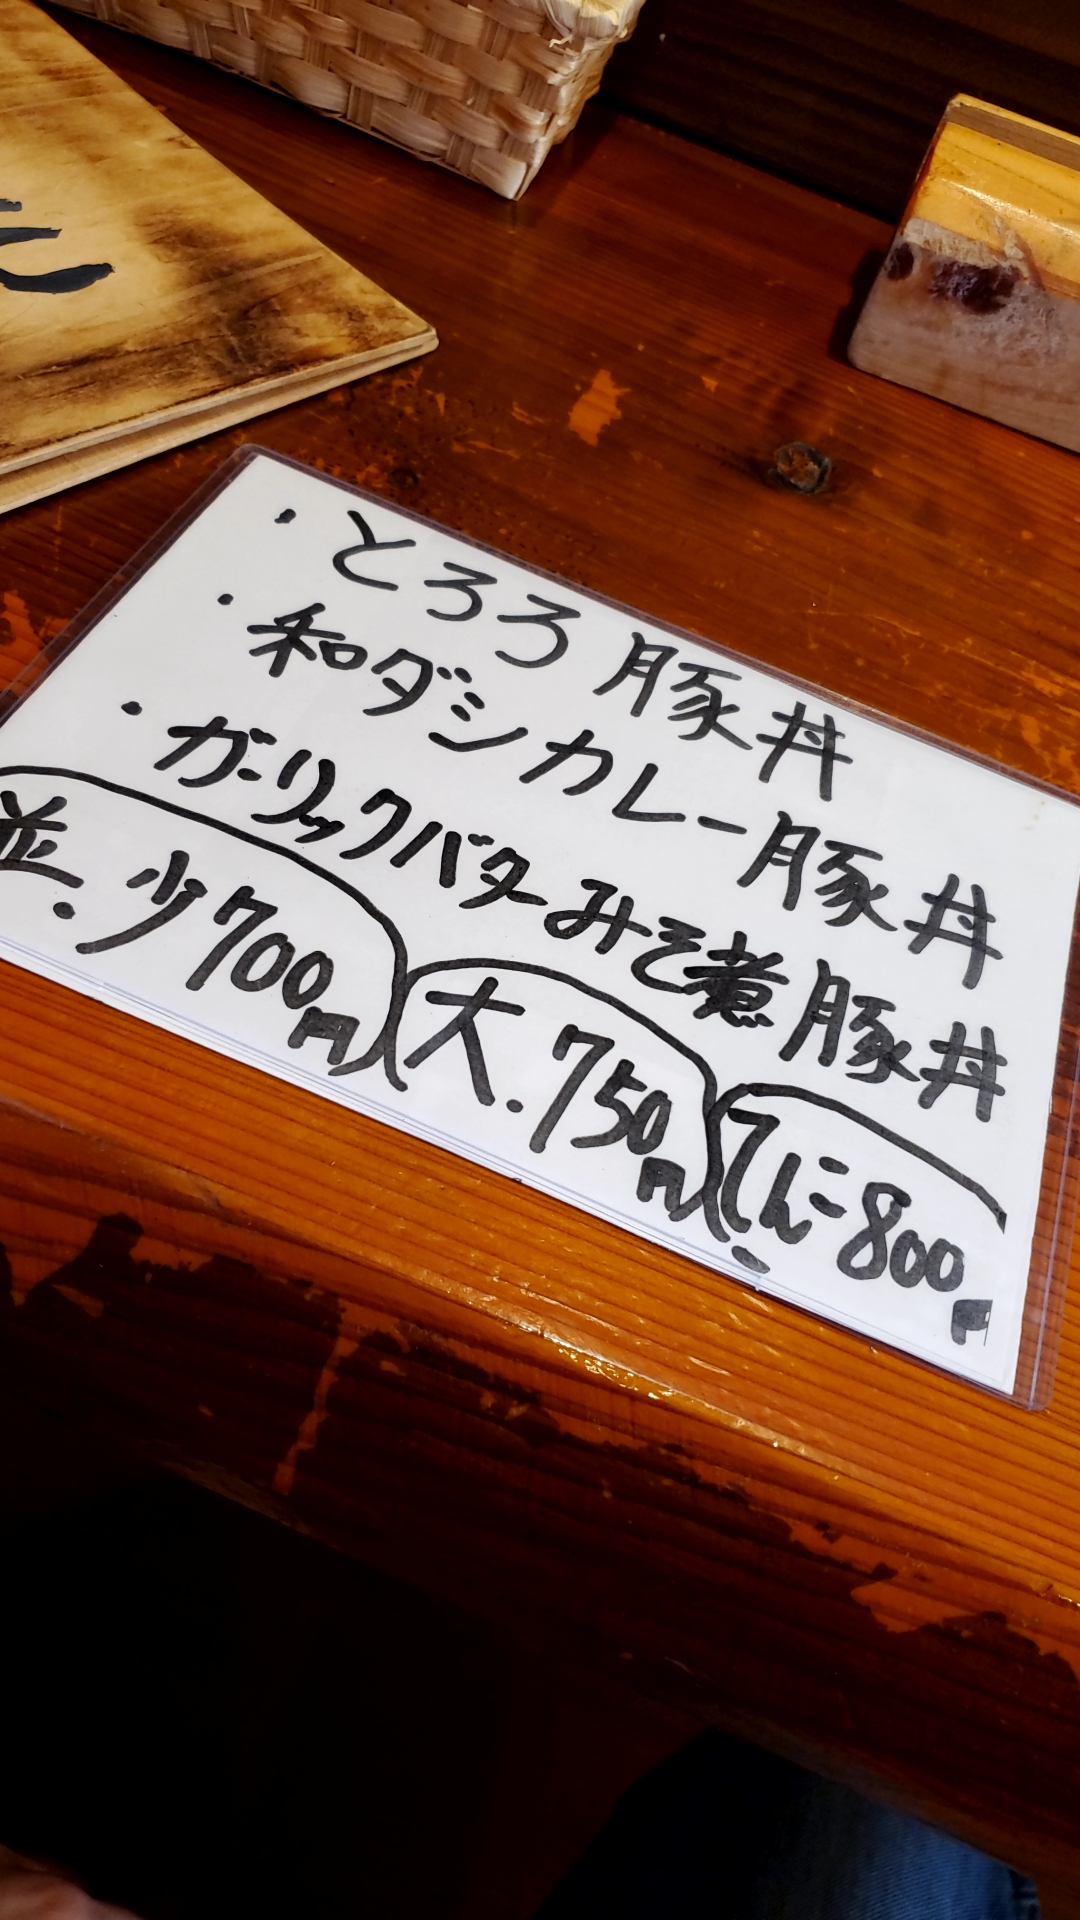 ・とろろ豚丼
・和ダシカレー豚丼
・ガーリックバターみそ煮豚丼
並・少700円
大・750円
てんこ800円